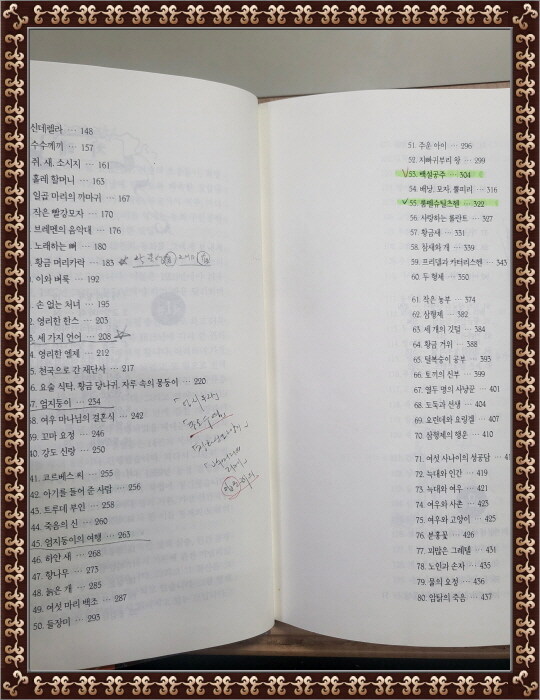 신데렐라 … 148
수수께끼 … 157
쥐, 새, 소시지 … 161
홀레 할머니 … 163
일곱 마리의 까마귀 … 167
작은 빨강모자 … 170
브레멘의 음악대 … 176
노래하는 뼈 … 180
황금 머리카락 … 183
이와 벼룩 … 192
손 없는 처녀 … 195
영리한 한스 … 203
세 가지 언어 … 208
4. 영리한 엘제 … 212
5. 천국으로 간 재단사 … 217
6. 요술 식탁, 황금 당나귀, 자루 속의 몽둥이 … 220
37. 엄지둥이 … 234
38. 여우 마나님의 결혼식 … 242
39. 꼬마 요정 … 246
40. 강도 신랑 … 250
41. 코르베스 씨 … 255
42. 아기를 들어 준 사람 … 256
43. 트루데 부인 … 258
44. 죽음의 신 … 260
45. 엄지둥이의 여행 … 263
46. 하얀 새 … 268
47. 향나무 … 273
48. 늙은 개 … 285
49. 여섯 마리 백조 … 287
50. 들장미 … 293
51. 주운 아이 … 296
52. 지빠귀부리 왕 … 299
53. 백설공주 … 304
54. 배낭, 모자, 뿔피리 … 316
55. 룸펠슈틸츠헨 … 322
56. 사랑하는 롤란트 … 327
57. 황금새 … 331
58. 참새와 개 … 339
59. 프리델과 카터리스헨 … 343
60. 두 형제 … 350
61. 작은 농부 … 374
62. 삼형제 … 382
63. 세 개의 깃털 … 384
64. 황금 거위 … 388
65. 털북숭이 공주 … 393
66. 토끼의 신부 … 399
67. 열두 명의 사냥꾼 … 401
68. 도둑과 선생 … 404
69. 요린데와 요링겔 … 407
70. 삼형제의 행운 … 410
71. 여섯 사나이의 성공담
72. 늑대와 인간 … 419
73. 늑대와 여우 … 421
74. 여우와 사촌 … 423
75. 여우와 고양이 … 425
76. 분홍꽃 … 426
77. 꾀많은 그레텔 … 431
78. 노인과 손자 … 435
79. 물의 요정 … 436
80. 암탉의 죽음 … 437